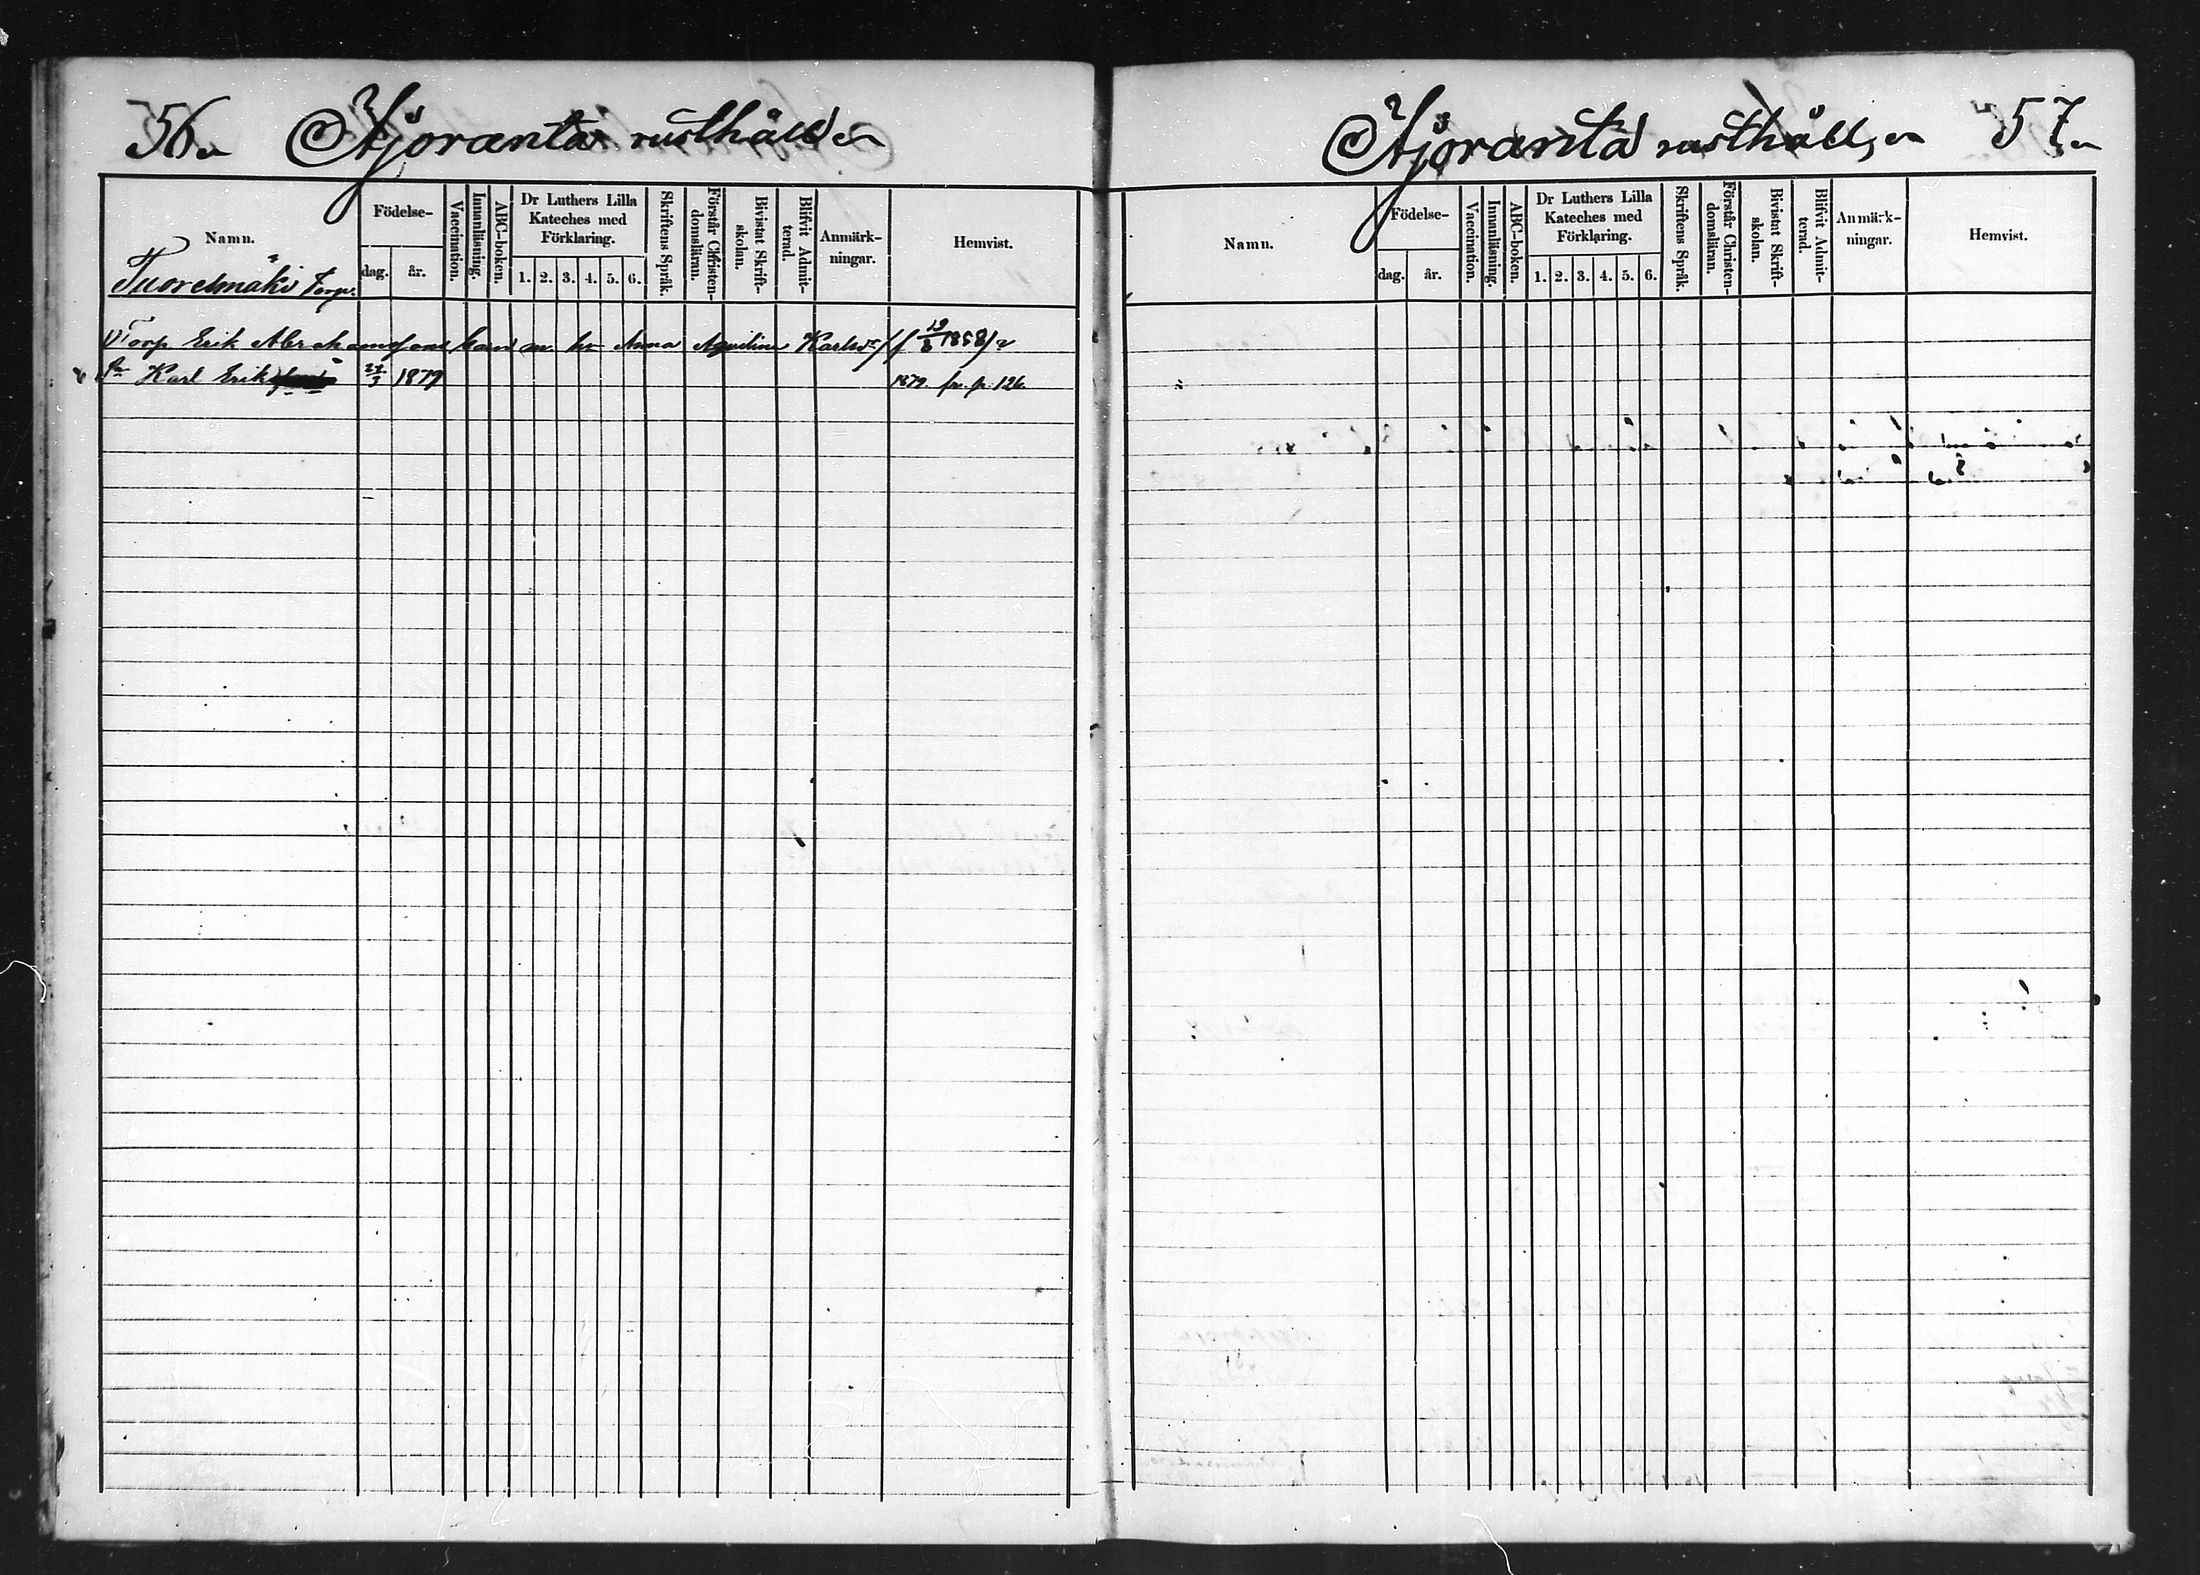 56.
Äjöranta rusthåll
Namn.
Födelse-
dag.
år.
Vaccination.
Innanläsning.
ABC-boken.
Dr Luthers Lilla
Kateches med
Förklaring.
1. 2. 3. 4. 5. 6.
Skriftens Språk.
Förstår Christen-
domsläran.
Bivistat Skrift-
skolan.
Blifvit Admit-
terad.
Anmärk-
ningar.
Hemvist.
Tuorelmäki Torp.
Torp Erik Abrahamsons barn m. hu Anna Karlsdr
Karl Erik 27/3 1879 1879 fr. p. 126
Äjöranta rusthåll, 57.
Namn.
Födelse-
dag.
år.
Vaccination.
Innanläsning.
ABC-boken.
Dr Luthers Lilla
Kateches med
Förklaring.
1. 2. 3. 4. 5. 6.
Skriftens Språk.
Förstår Christen-
domsläran.
Bivistat Skrift-
skolan.
Blifvit Admit-
terad.
Anmärk-
ningar.
Hemvist.